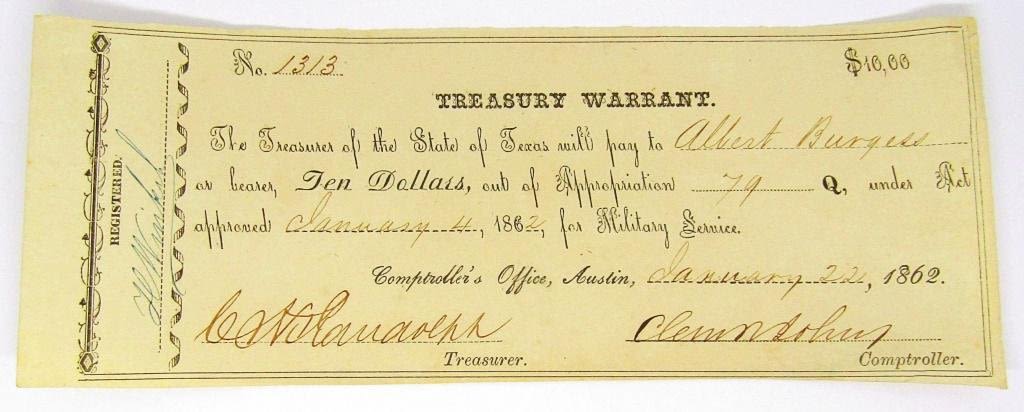 No. 1313
$10,00
TREASURY WARRANT.
The Treasurer of the State of Texas will pay to Albert Burgess
or bearer, Ten Dollars, out of Appropriation 79 Q, under Act
approved January 4, 1862, for Military Service.
Comptroller's Office, Austin, January 22, 1862.
C H Randolph
Treasurer.
Clem R Johns
Comptroller.
REGISTERED.